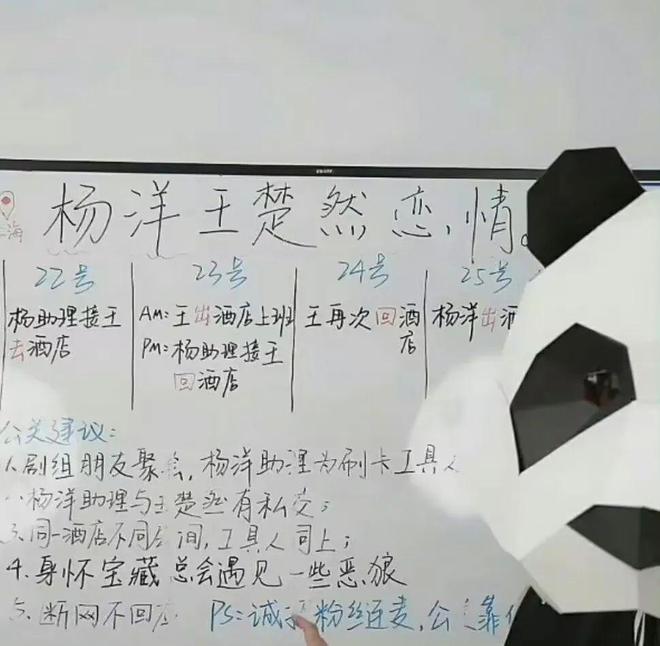 海
杨洋王楚然恋情。
22号
23号
24号
25号
杨助理接王
去酒店
AM: 王出酒店上班
PM: 杨助理接王
回酒店
王再次回酒
店
杨洋出酒
公关建议:
1.剧组朋友聚会,杨洋助理为刷卡工具人
2.杨洋助理与王楚然有私交;
3.同一酒店不同房间,工具人同上;
4.身怀宝藏总会遇见一些恶狼
5.断网不回应
PS:诚 粉丝连麦,公 靠